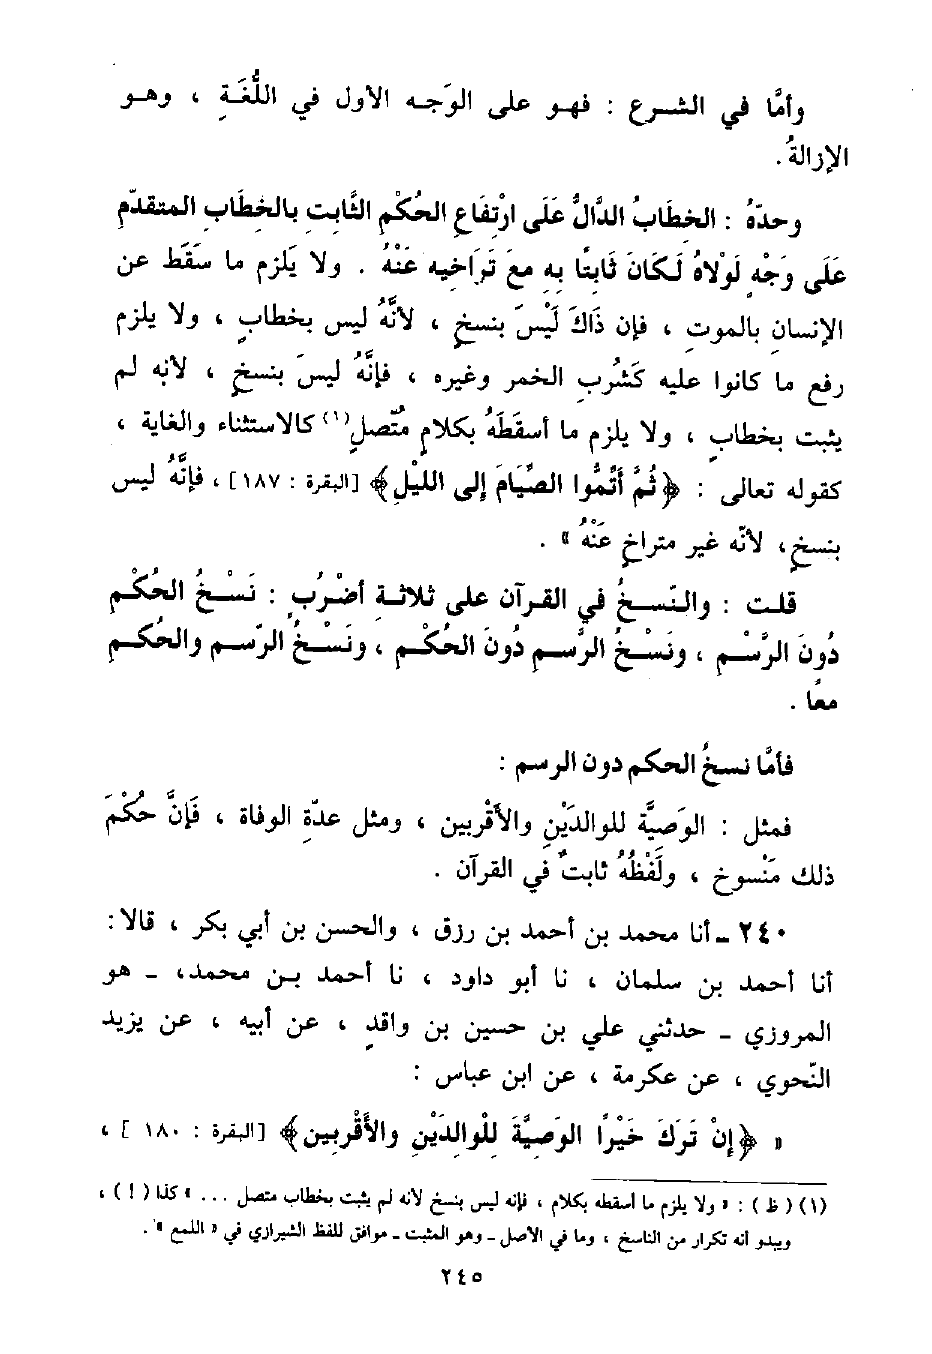 وأمَّا في الشرع : فهو على الوَجه الأول في اللُّغَةِ ، وهو
الإزالةُ .
وحدّهُ : الخطَابُ الدَّالُّ عَلَى ارْتفَاعِ الحُكْمِ الثَّابتِ بالخطَابِ المتقدّمِ
عَلَى وَجْهٍ لَوْلاهُ لَكَانَ ثَابتًا بِهِ مَعَ تَرَاخيه عَنْهُ . ولا يَلزم ما سَقَط عن
الإنسانِ بالموتِ ، فإن ذَاكَ لَيْسَ بنسخٍ ، لأنَّهُ ليس بخطابٍ ، ولا يلزم
رفع ما كانوا عليه كَشُربِ الخمر وغيره ، فإنَّهُ ليسَ بنسخٍ ، لأنه لم
يثبت بخطابٍ ، ولا يلزم ما أسقطَهُ بكلامٍ مُتّصلٍ(١) كالاستثناء والغاية ،
كقوله تعالى : ﴿ثُمَّ أَتِمُّوا الصِّيَامَ إِلى الليْلِ﴾ [البقرة : ١٨٧] ، فإنَّهُ ليس
بنسخٍ، لأنّه غير متراخٍ عَنْهُ » .
قلت : والنّسخُ في القرآن على ثلاثة أضْرُبٍ : نَسْخُ الحُكْمِ
دُونَ الرَّسْمِ ، ونَسْخُ الرَّسمِ دُونَ الحُكْمِ ، ونَسْخُ الرّسمِ والحُكمِ
معًا .
فأمَّا نسخُ الحكم دون الرسم :
فمثل : الوَصيَّة للوالدَيْنِ والأقْربين ، ومثل عدّةِ الوفاة ، فَإنَّ حُكْمَ
ذلك مَنْسوخ ، ولَفْظُهُ ثابتٌ في القرآن .
٢٤٠ ـ أنا محمد بن أحمد بن رزق ، والحسن بن أبي بكر ، قالا :
أنا أحمد بن سلمان ، نا أبو داود ، نا أحمد بن محمد، ـ هو
المروزي ـ حدثني علي بن حسين بن واقدٍ ، عن أبيه ، عن يزيد
النّحوي ، عن عكرمة ، عن ابن عباس :
« ﴿إِنْ تَرَكَ خَيْرًا الوَصيَّةَ لِلْوالِدَيْنِ والأَقْرِبين﴾ [البقرة : ١٨٠] ،
(١) ( ظ ) : « ولا يلزم ما أسقطه بكلام ، فإنه ليس بنسخ لأنه لم يثبت بخطاب متصل ... » كذا ( ! ) ،
ويبدو أنه تكرار من الناسخ ، وما في الأصل ـ وهو المثبت ـ موافق للفظ الشيرازي في « اللمع » .
٢٤٥